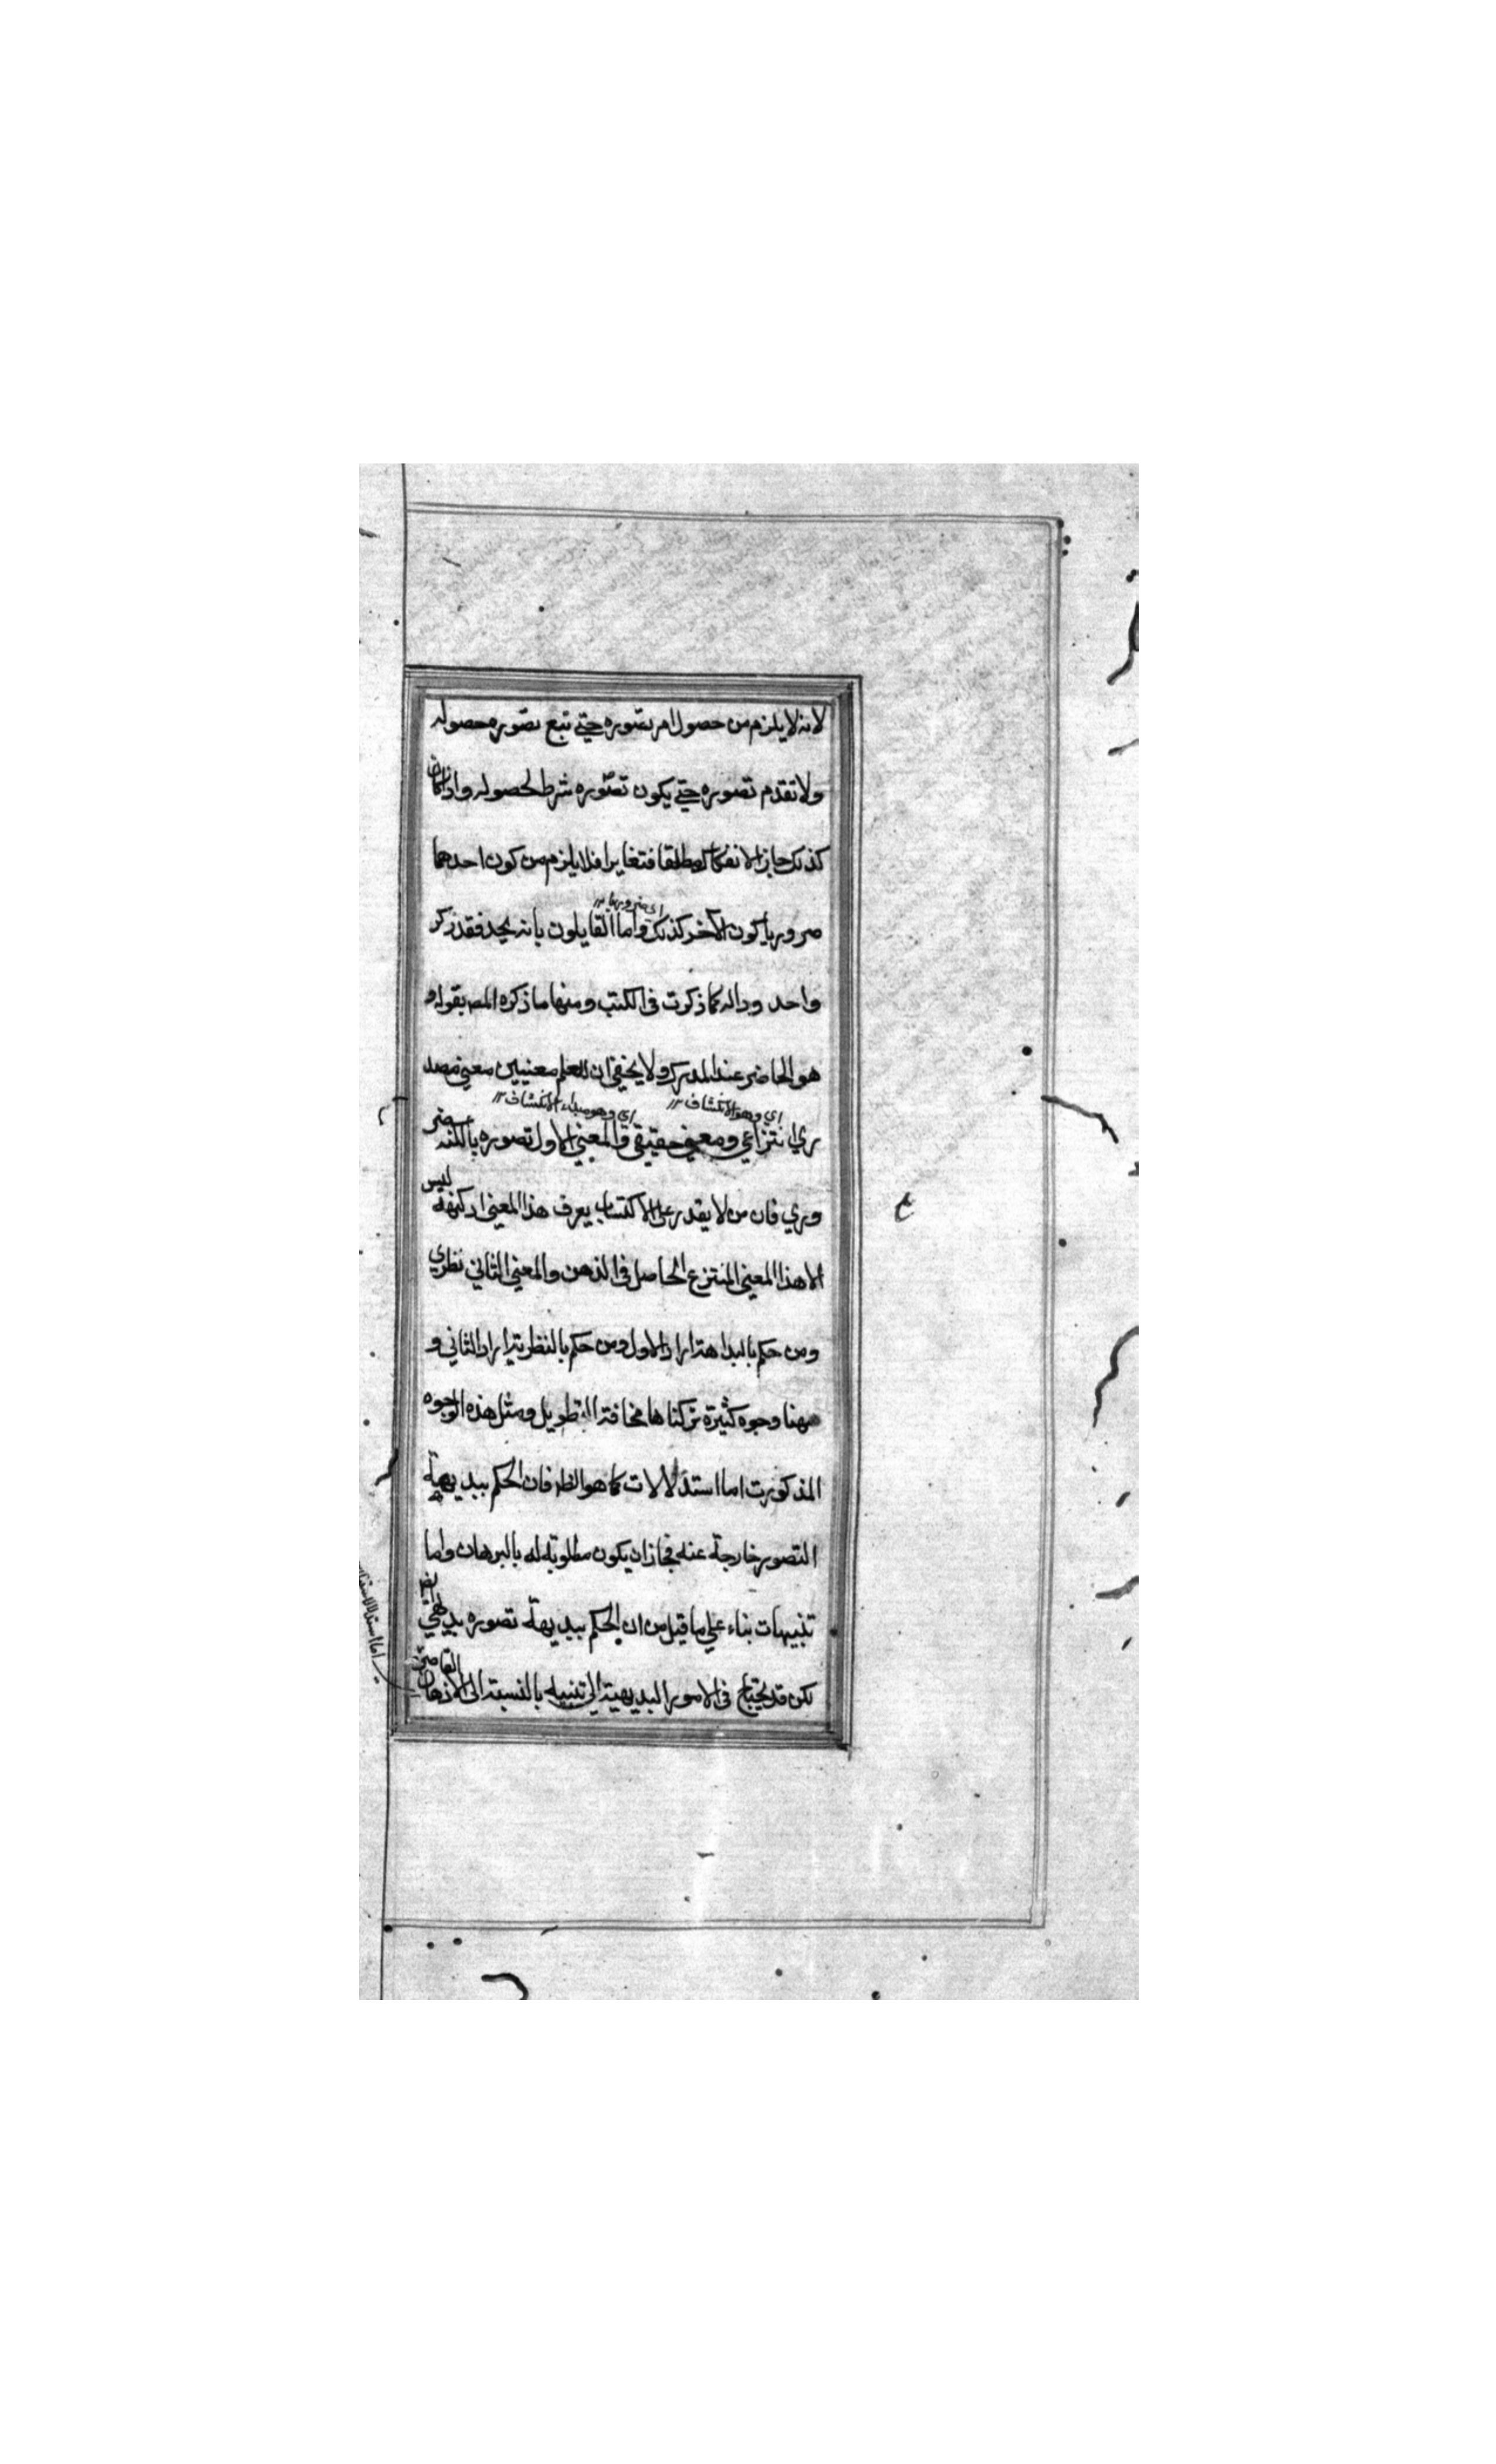 لانه لا يلزم من حصول امر تصوره حتى تبع تصوره حصوله
ولا تقدم تصوره حتى يكون تصوره شرط لحصوله واذا كان
كذلك جاز الانفكاك مطلقا فتغايرا فلا يلزم من كون احدهما
اي ضروريا
ضروريا كون الآخر كذلك واما القايلون بانه يحد فقد ذكر
واحد وداله كما ذكرت في الكتب ومنها ما ذكره المصـ بقوله و
هو الحاضر عند المدرك ولا يخفى ان للعلم معنيين معنى مصد
اي وهو الانكشاف اي وهو مبداء الانكشاف
ري انتزاعي ومعنى حقيقي فالمعنى الاول تصوره بالكنه ضر
وري فان من لا يقدر على الاكتساب يعرف هذا المعنى اذ كنهه ليس
الا هذا المعنى المنتزع الحاصل في الذهن والمعنى الثاني نظري
ومن حكم بالبداهة اراد الاول ومن حكم بالنظرية اراد الثاني و
ههنا وجوه كثيرة تركناها مخافة التطويل ومثل هذه الوجوه
المذكورت اما استدلالات كما هو الظ فان الحكم ببديهية
التصور خارجة عنه فجاز ان يكون مطلوبة له بالبرهان واما
تنبيهات بناء على ما قيل من ان الحكم ببديهة تصوره بديهي ايضا
لكن قد يحتاج في الامور البديهية الى تنبيه بالنسبة الى الاذهان القاصرة
ع